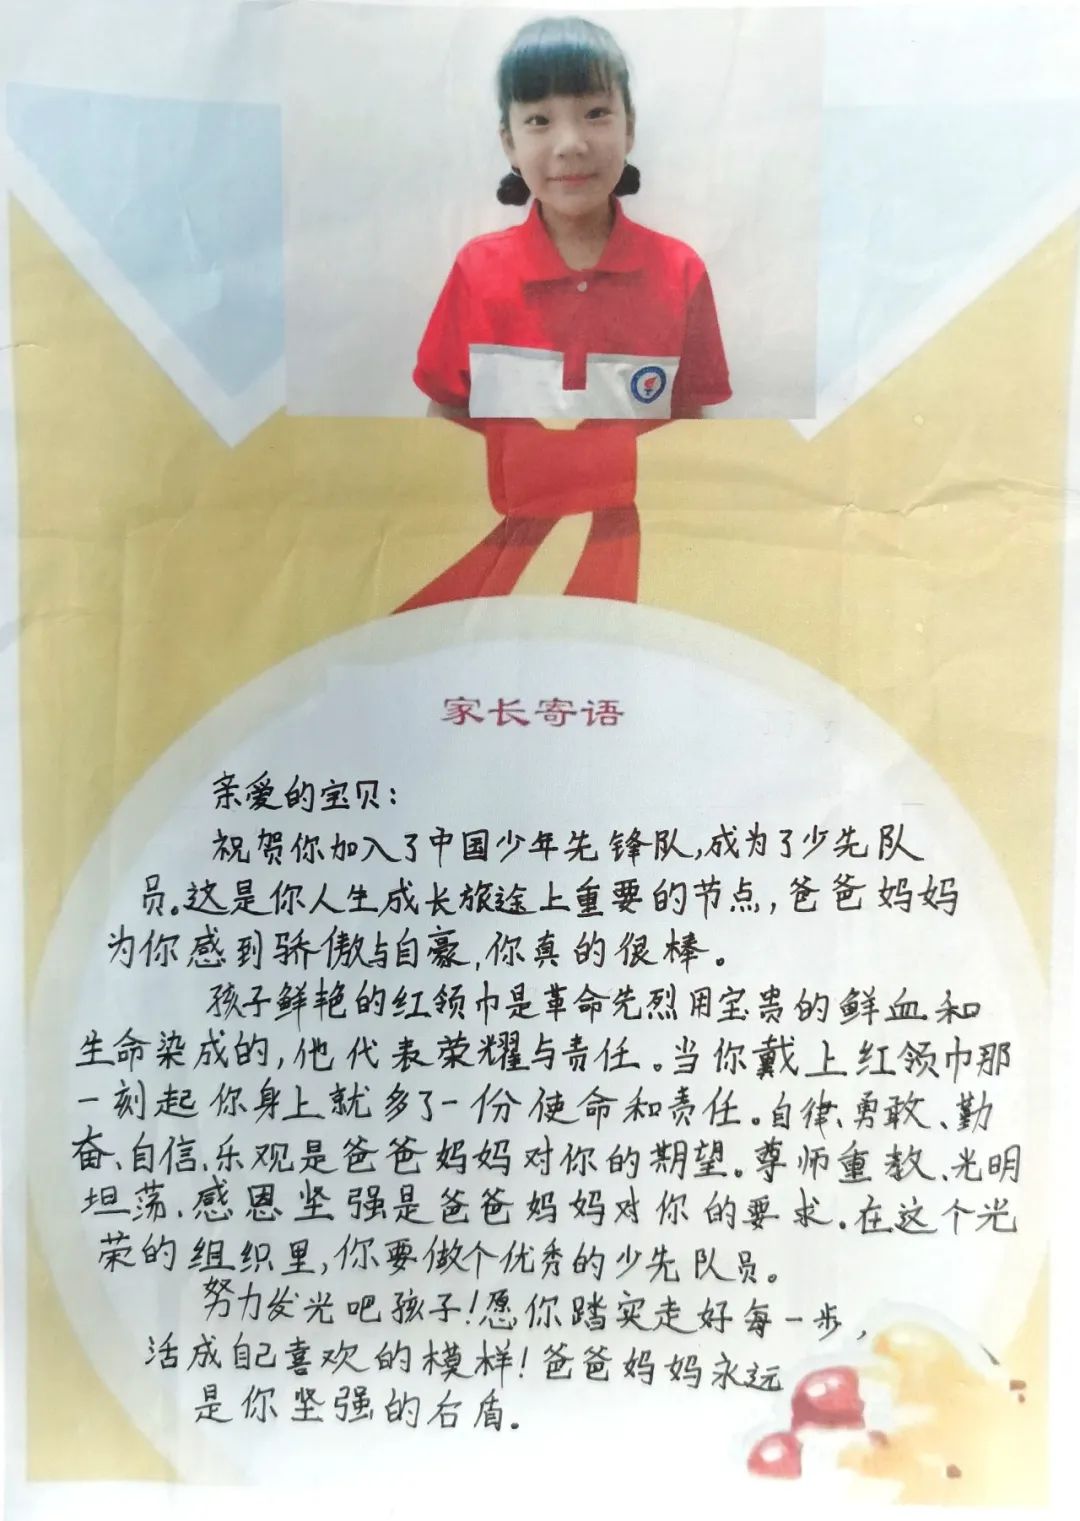 家长寄语
亲爱的宝贝：
祝贺你加入了中国少年先锋队，成为了少先队
员。这是你人生成长旅途上重要的节点，爸爸妈妈
为你感到骄傲与自豪，你真的很棒。
孩子鲜艳的红领巾是革命先烈用宝贵的鲜血和
生命染成的，他代表荣耀与责任。当你戴上红领巾那
一刻起你身上就多了一份使命和责任。自律、勇敢、勤
奋、自信、乐观是爸爸妈妈对你的期望。尊师重教、光明
坦荡、感恩坚强是爸爸妈妈对你的要求。在这个光
荣的组织里，你要做个优秀的少先队员。
努力发光吧孩子！愿你踏实走好每一步，
活成自己喜欢的模样！爸爸妈妈永远
是你坚强的后盾。